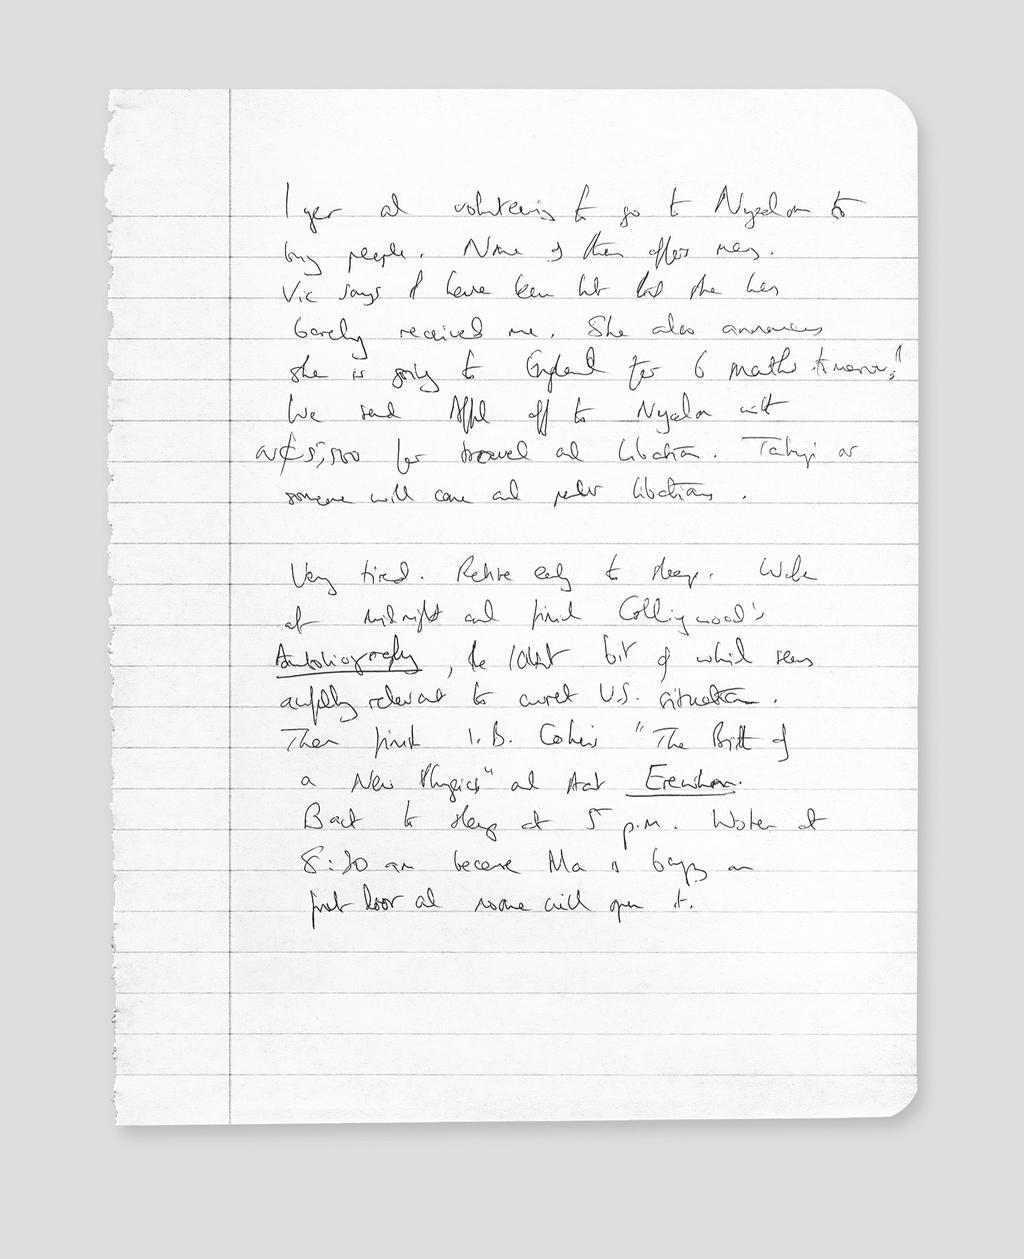 I volunteering to go to to
people. None of them offers money.
Vic says I have been but she has
barely received me. She also announces
she is going to England for 6 months tomorrow!
We send off to with
N₵5,500 for travel and libation. or
someone will come and libations.
Very tired. Retire early to sleep. Wake
at midnight and finish Collingwood's
Autobiography, the last bit of which seems
awfully relevant to current U.S. situation.
Then finish I. B. Cohen's "The Birth of
a New Physics" and start Erewhon.
Back to sleep at 5 p.m. Woken at
8:30 am because Ma is banging on
front door and no one will open it.